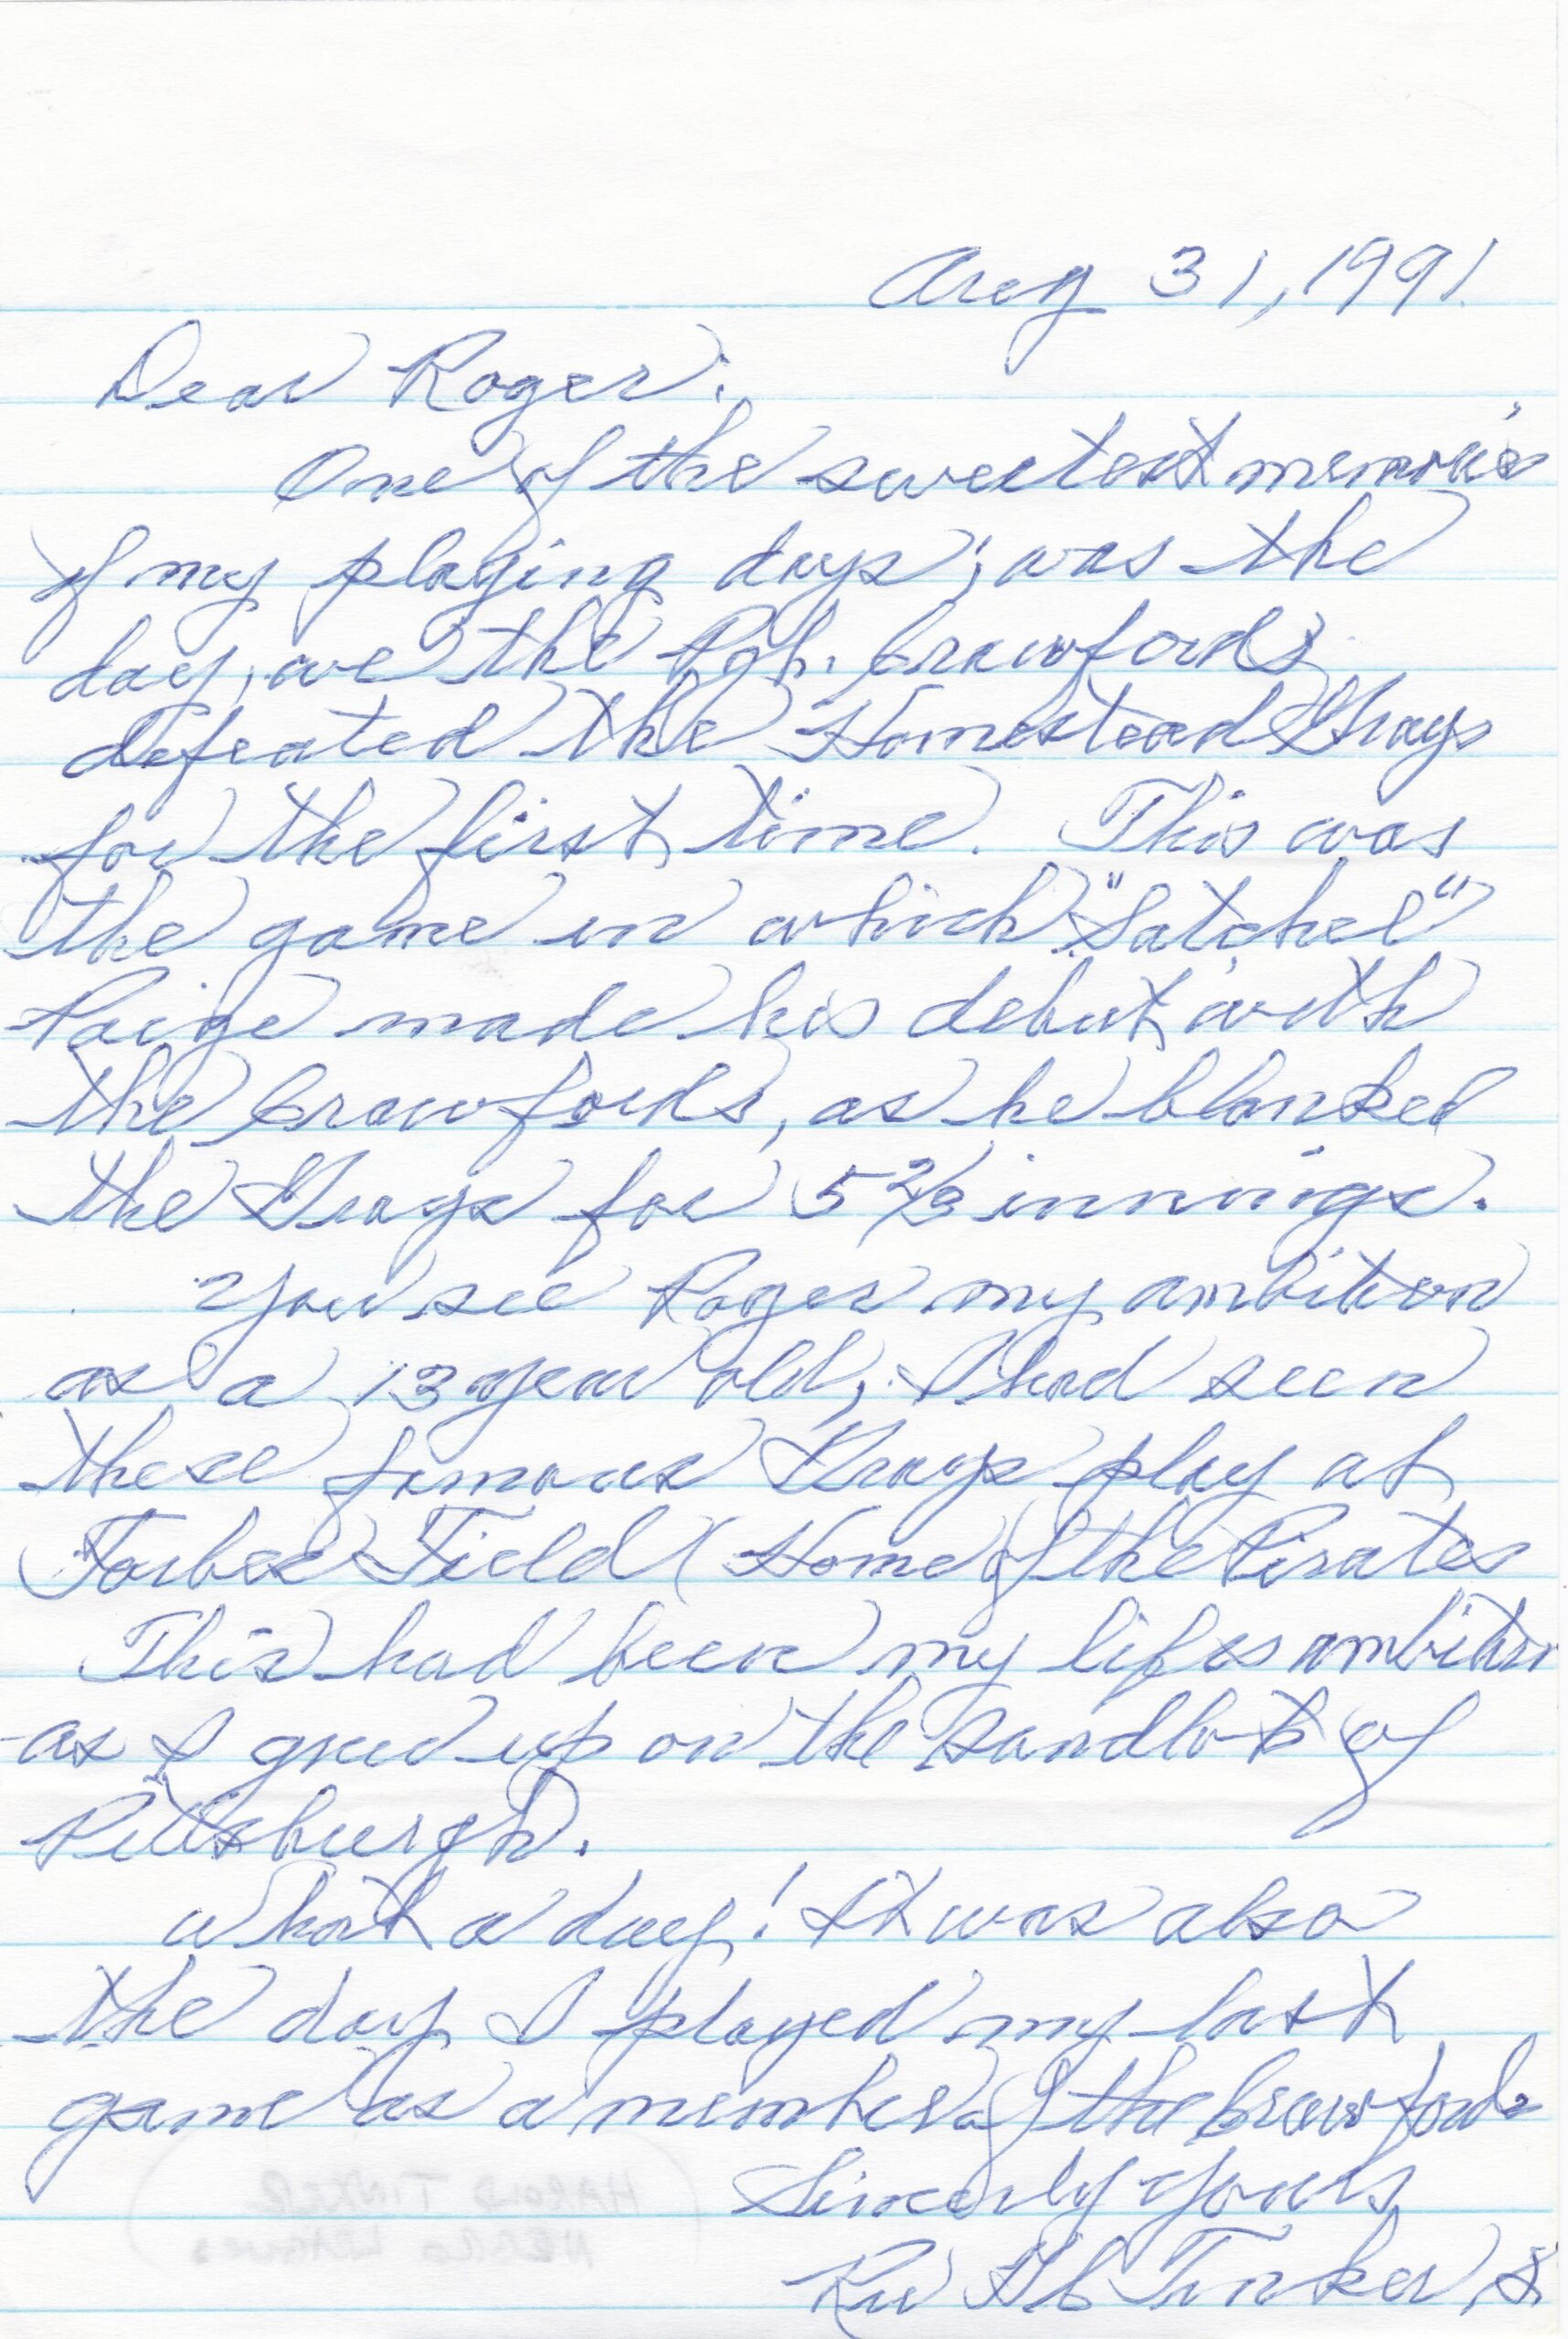 Aug 31, 1991.
Dear Roger:
One of the sweetest memories
of my playing days; was the
day, we the Pgh. Crawfords
defeated the Homestead Grays
for the first time. This was
the game in which "Satchel"
Paige made his debut with
the Crawfords, as he blanked
the Grays for 5 2/3 innings.
You see Roger my ambition
as a 13 year old, I had seen
these famous Grays play at
Forbes Field (Home of the Pirates
This had been my lifes ambition
as I grew up on the sandlots of
Pittsburgh.
What a day! It was also
the day I played my last
game as a member of the Crawfords
Sincerly yours
Rev HC Tinker, S
(HAROLD TINKER
NEGRO LEAGUES